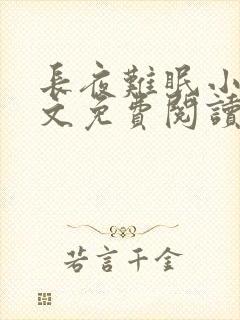 長夜難眠小
文免費閱讀
若言千金